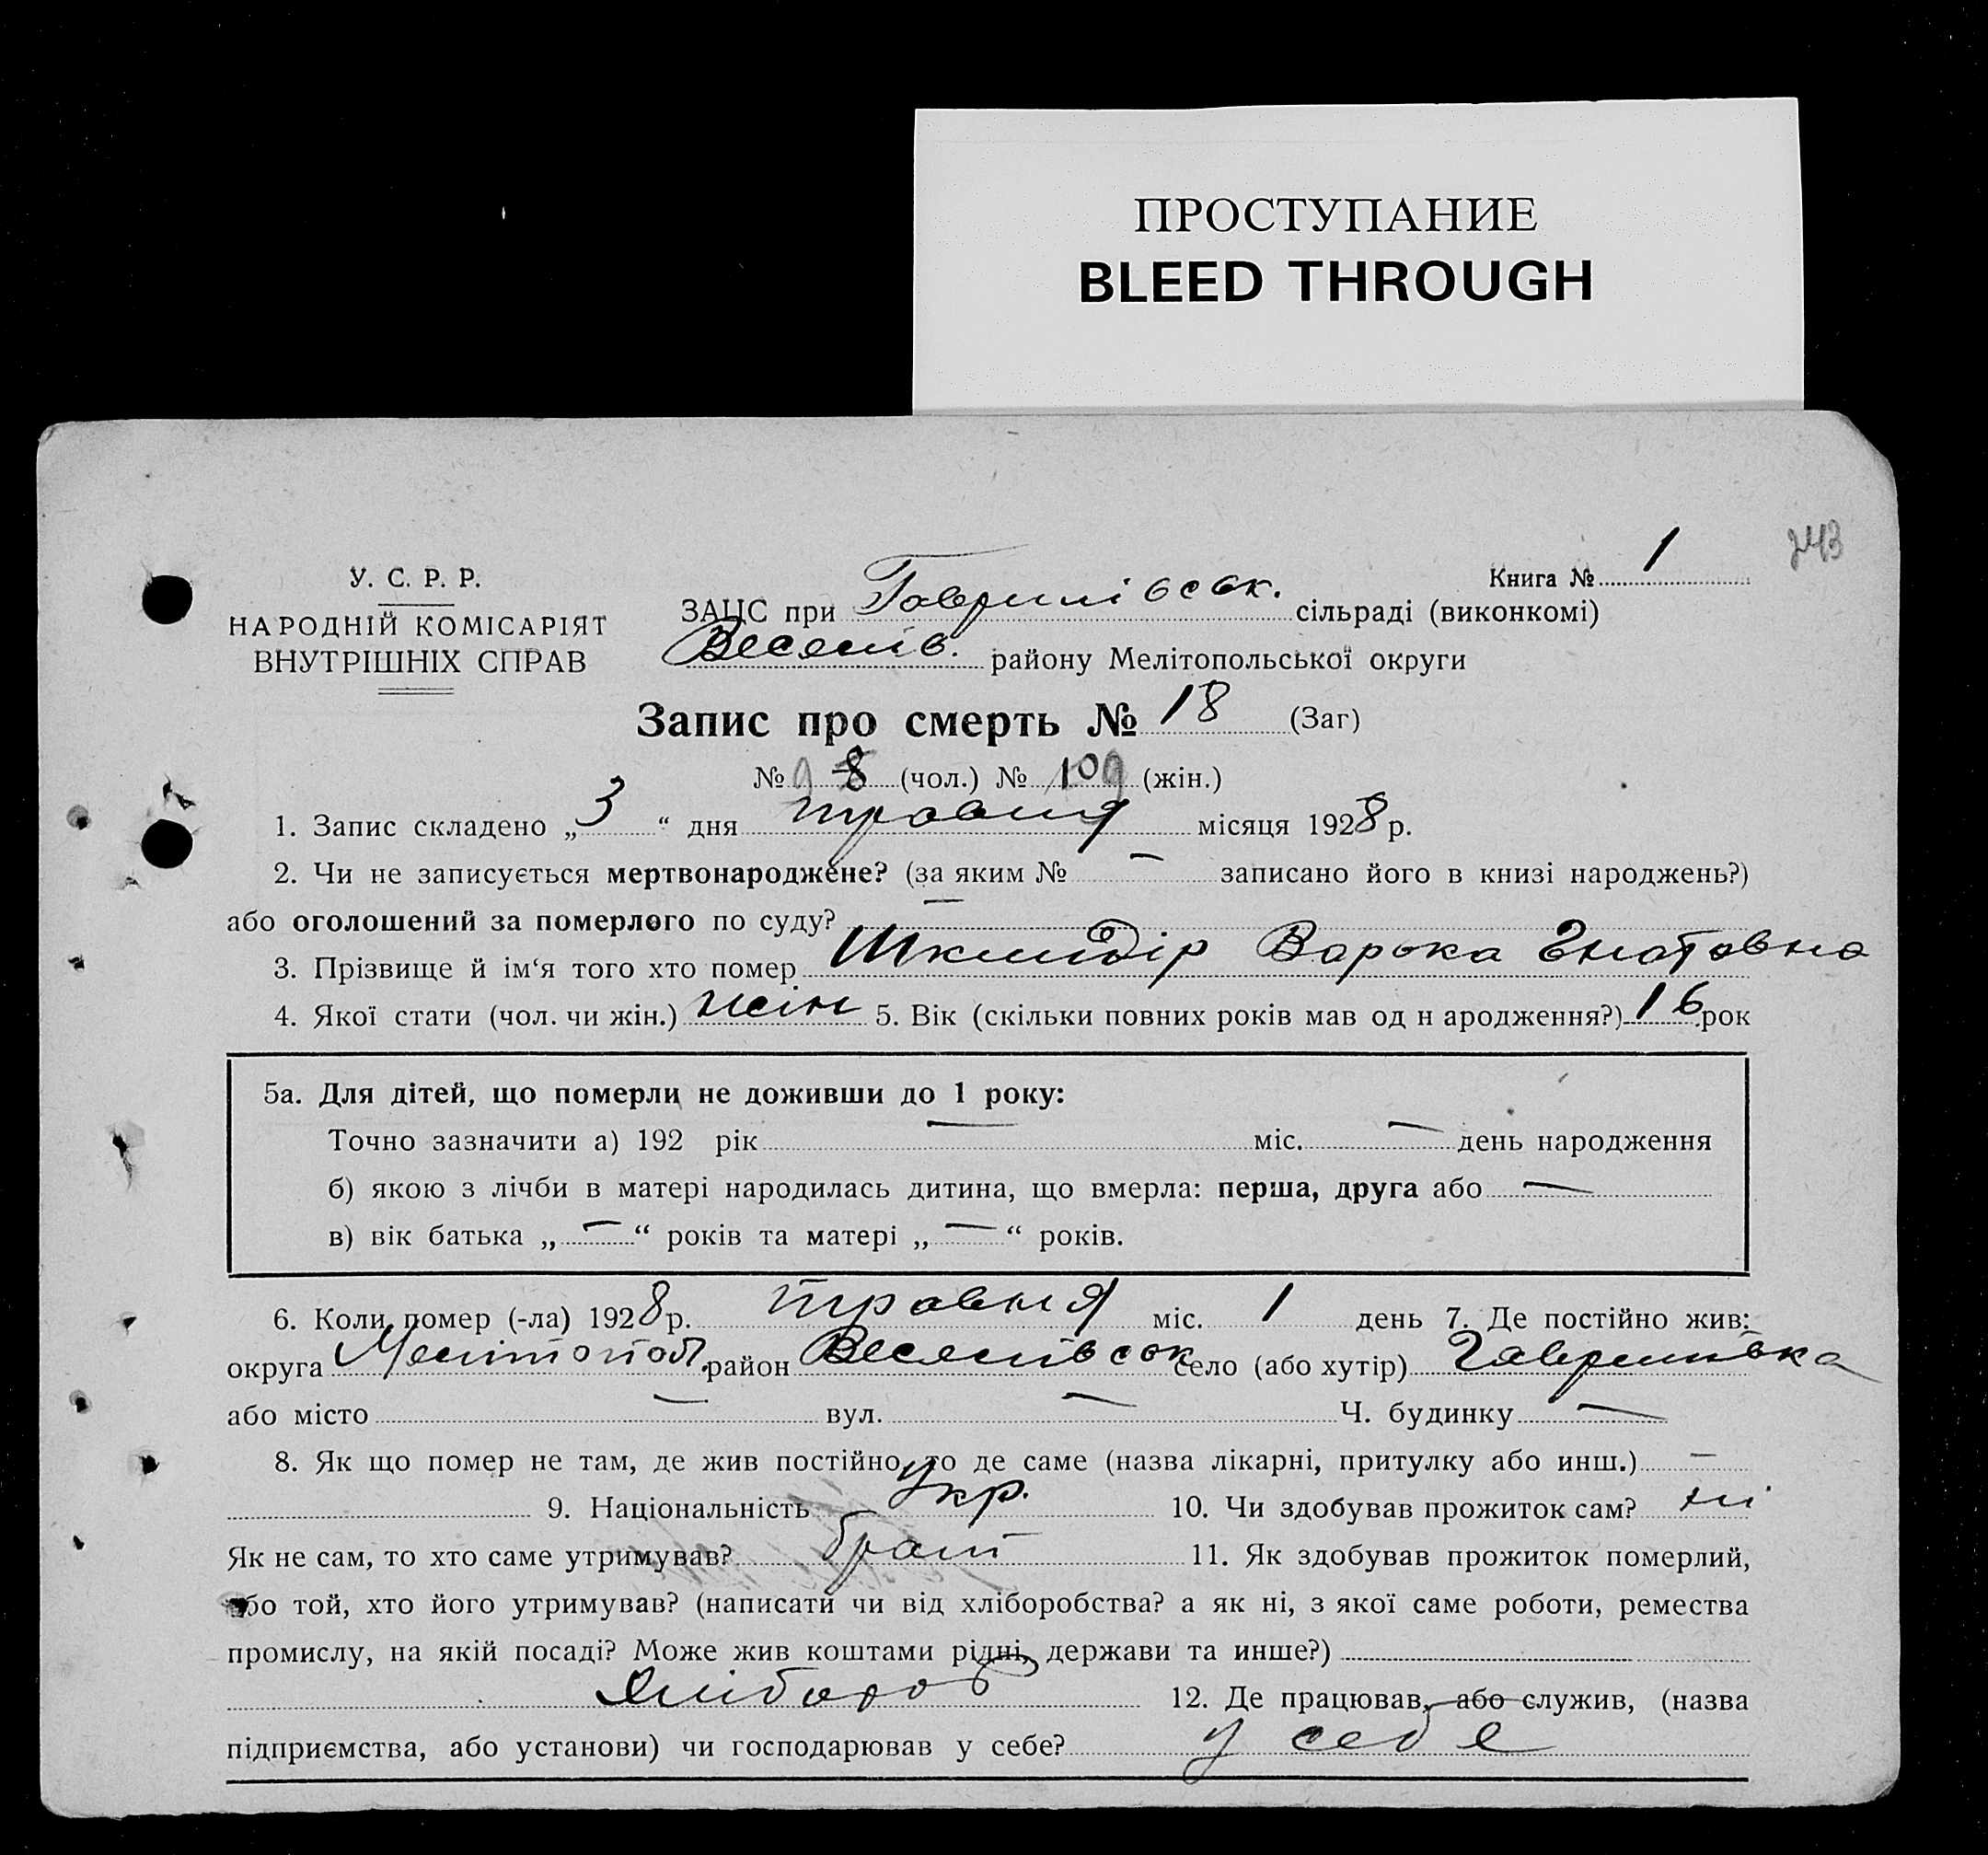 ПРОСТУПАНИЕ
BLEED THROUGH
243
Книга № 1
У. С. Р. Р.
НАРОДНІЙ КОМІСАРІЯТ
ВНУТРІШНІХ СПРАВ
ЗАЦС при Гаврилівськ. сільраді (виконкомі)
Веселів. району Мелітопольської округи
Запис про смерть № 18 (Заг)
№ 8 (чол.) № 10 (жін.)
1. Запис складено „3“ дня травня місяця 1928 р.
2. Чи не записується мертвонароджене? (за яким № — записано його в книзі народжень?)
або оголошений за померлого по суду? —
3. Прізвище й ім‘я того хто помер Варка Гнатовна
4. Якої стати (чол. чи жін.) жін 5. Вік (скільки повних років мав од н ародження?) 16 рок
5а. Для дітей, що померли не доживши до 1 року:
Точно зазначити а) 192 рік — міс. — день народження
б) якою з лічби в матері народилась дитина, що вмерла: перша, друга або —
в) вік батька „—“ років та матері „—“ років.
6. Коли помер (-ла) 1928 р. травня міс. 1 день 7. Де постійно жив:
округа Мелітопол. район Веселівськ село (або хутір) Гаврилівка
або місто — вул. — Ч. будинку —
8. Як що помер не там, де жив постійно, то де саме (назва лікарні, притулку або инш.) —
9. Національність Укр. 10. Чи здобував прожиток сам? ні
Як не сам, то хто саме утримував? брат 11. Як здобував прожиток померлий,
або той, хто його утримував? (написати чи від хліборобства? а як ні, з якої саме роботи, ремества
промислу, на якій посаді? Може жив коштами рідні, держави та инше?)
хлібороб 12. Де працював, або служив, (назва
підприємства, або установи) чи господарював у себе? у себе